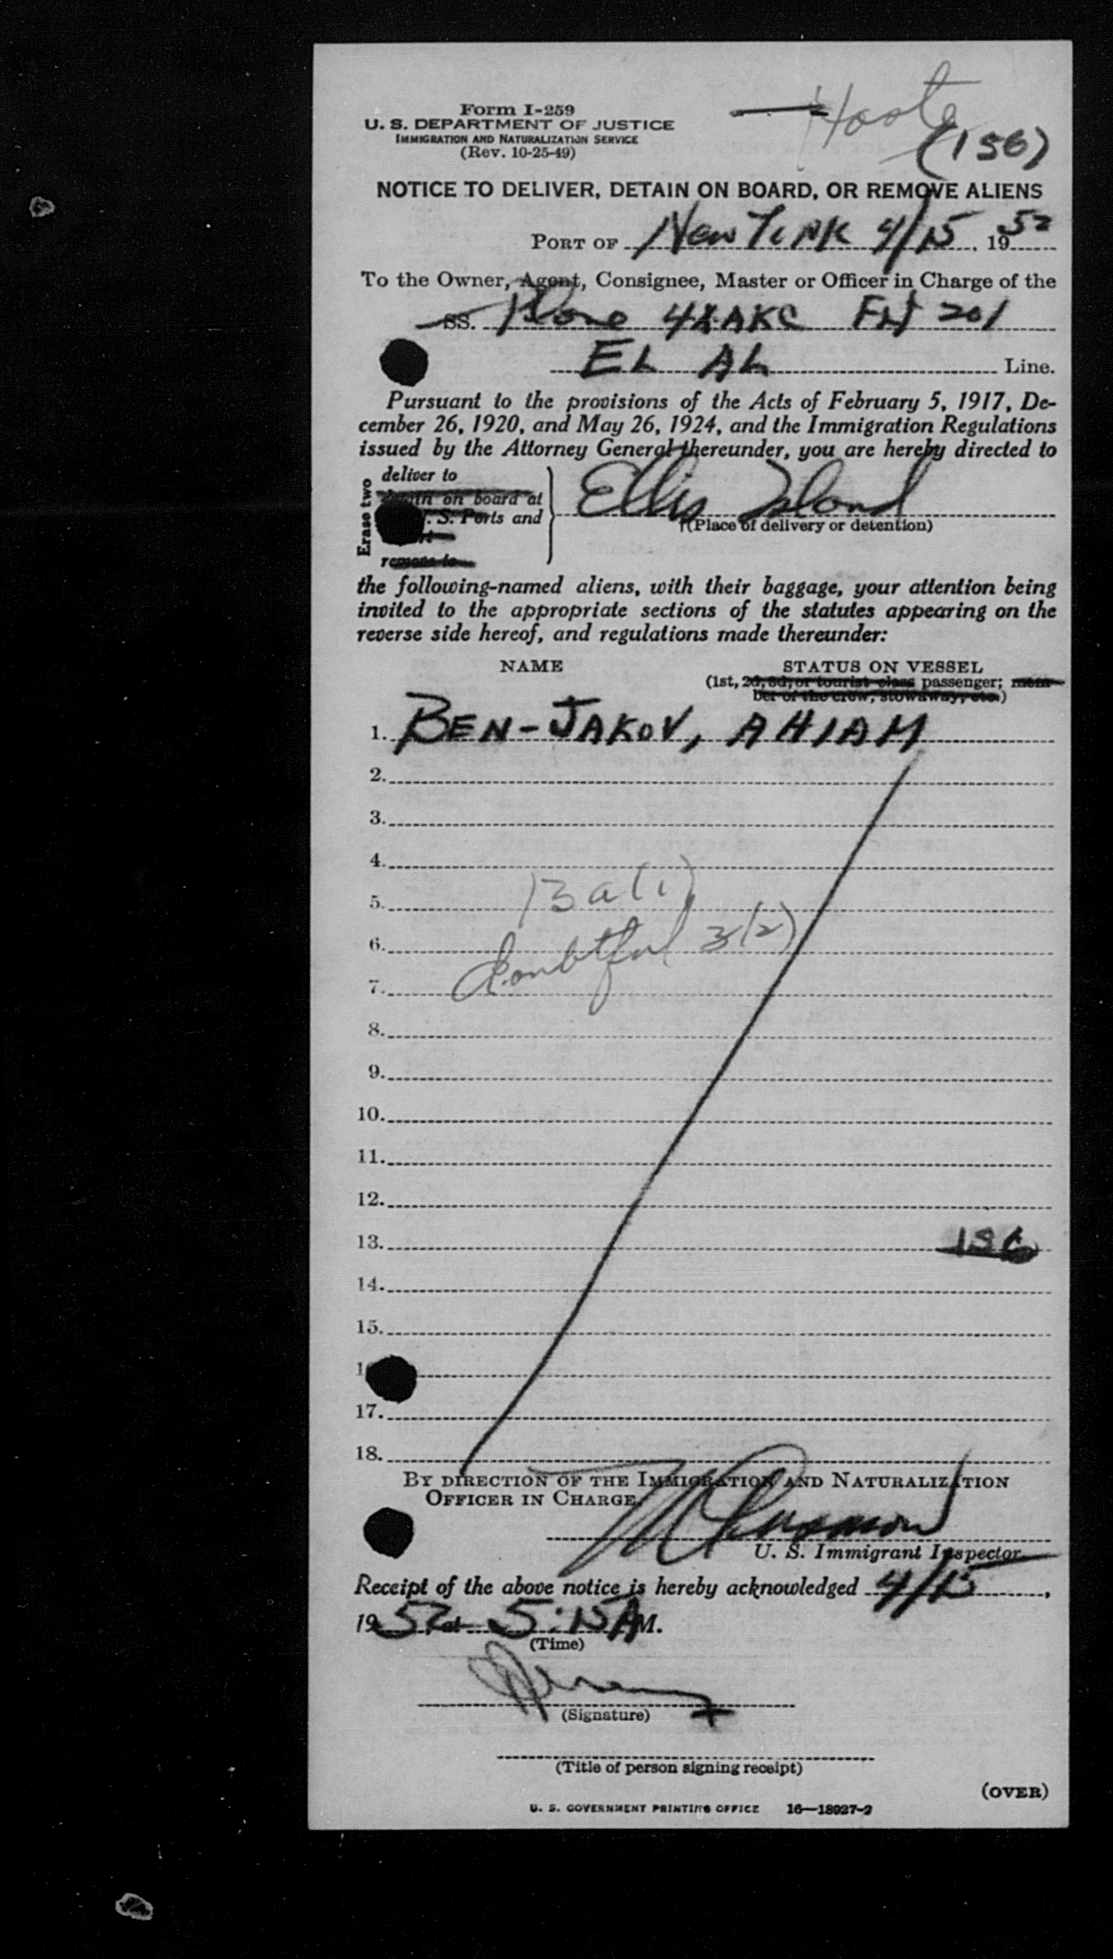 Form I-259
U. S. DEPARTMENT OF JUSTICE
IMMIGRATION AND NATURALIZATION SERVICE
(Rev. 10-25-49)
(156)
NOTICE TO DELIVER, DETAIN ON BOARD, OR REMOVE ALIENS
PORT OF New York 4/15, 1952
To the Owner, Agent, Consignee, Master or Officer in Charge of the
SS. Plane 4XAKC Flt 201
EL AL Line.
Pursuant to the provisions of the Acts of February 5, 1917, De-
cember 26, 1920, and May 26, 1924, and the Immigration Regulations
issued by the Attorney General thereunder, you are hereby directed to
Erase two
deliver to
on board at
U. S. Ports and
remove to
Ellis Island
(Place of delivery or detention)
the following-named aliens, with their baggage, your attention being
invited to the appropriate sections of the statutes appearing on the
reverse side hereof, and regulations made thereunder:
NAME STATUS ON VESSEL
(1st, 2d, 3d, or tourist class passenger; mem-
ber of the crew, stowaway, etc.)
1. BEN-JAKOV, AHIAM
2.
3.
4.
5. 13a(1)
6. doubtful 3(2)
7.
8.
9.
10.
11.
12.
13. 156
14.
15.
17.
18.
BY DIRECTION OF THE IMMIGRATION AND NATURALIZATION
OFFICER IN CHARGE,
U. S. Immigrant Inspector.
Receipt of the above notice is hereby acknowledged 4/15,
1952, at 5:15 A M.
(Time)
(Signature)
(Title of person signing receipt)
(OVER)
U. S. GOVERNMENT PRINTING OFFICE 16—18027-2